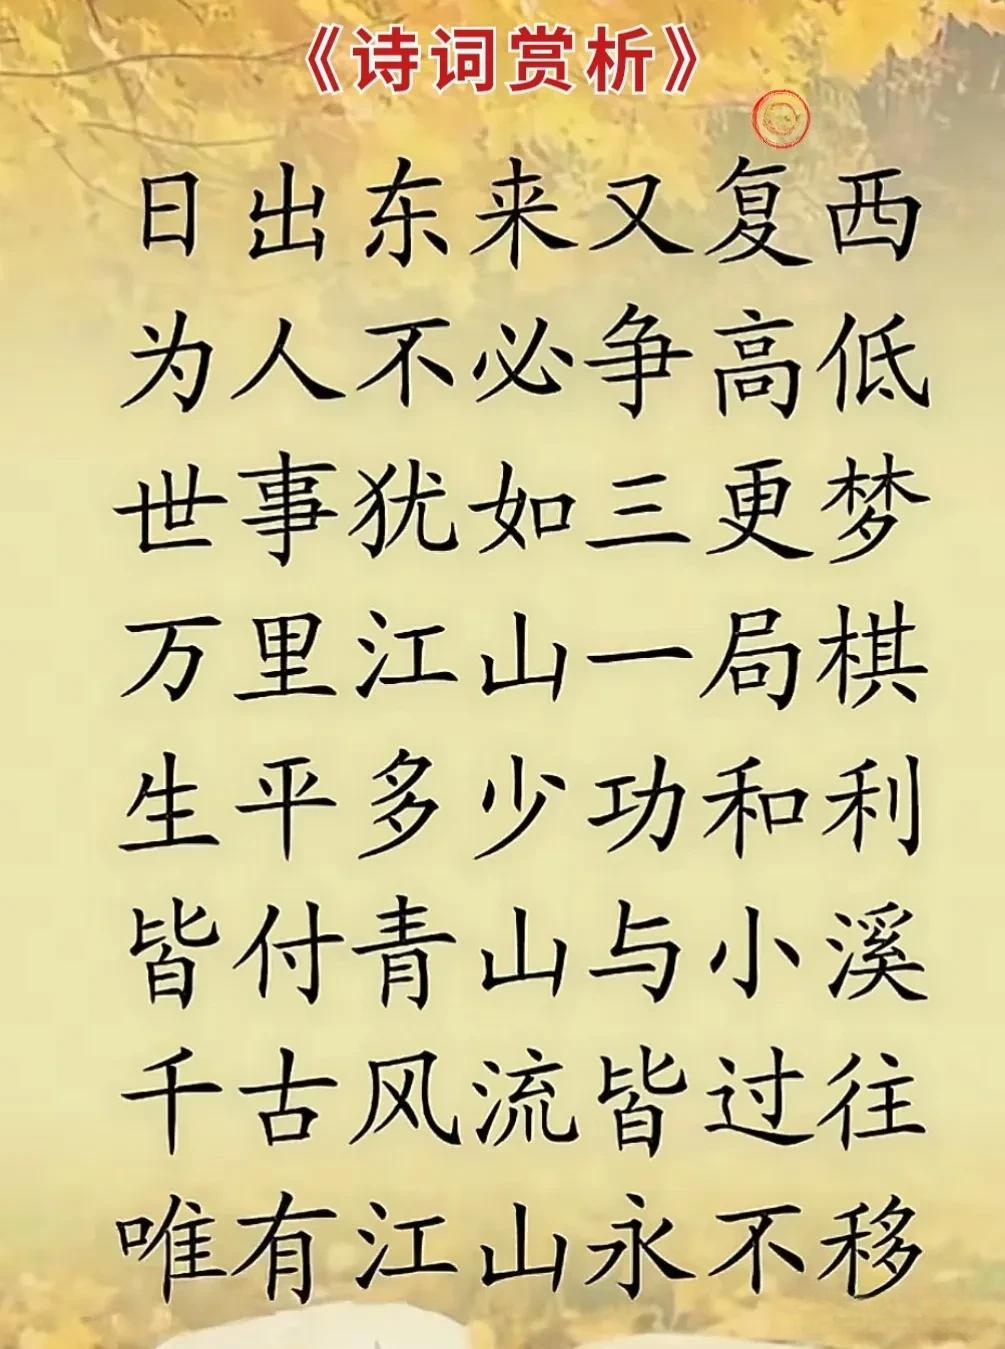 《诗词赏析》
日出东来又复西
为人不必争高低
世事犹如三更梦
万里江山一局棋
生平多少功和利
皆付青山与小溪
千古风流皆过往
唯有江山永不移